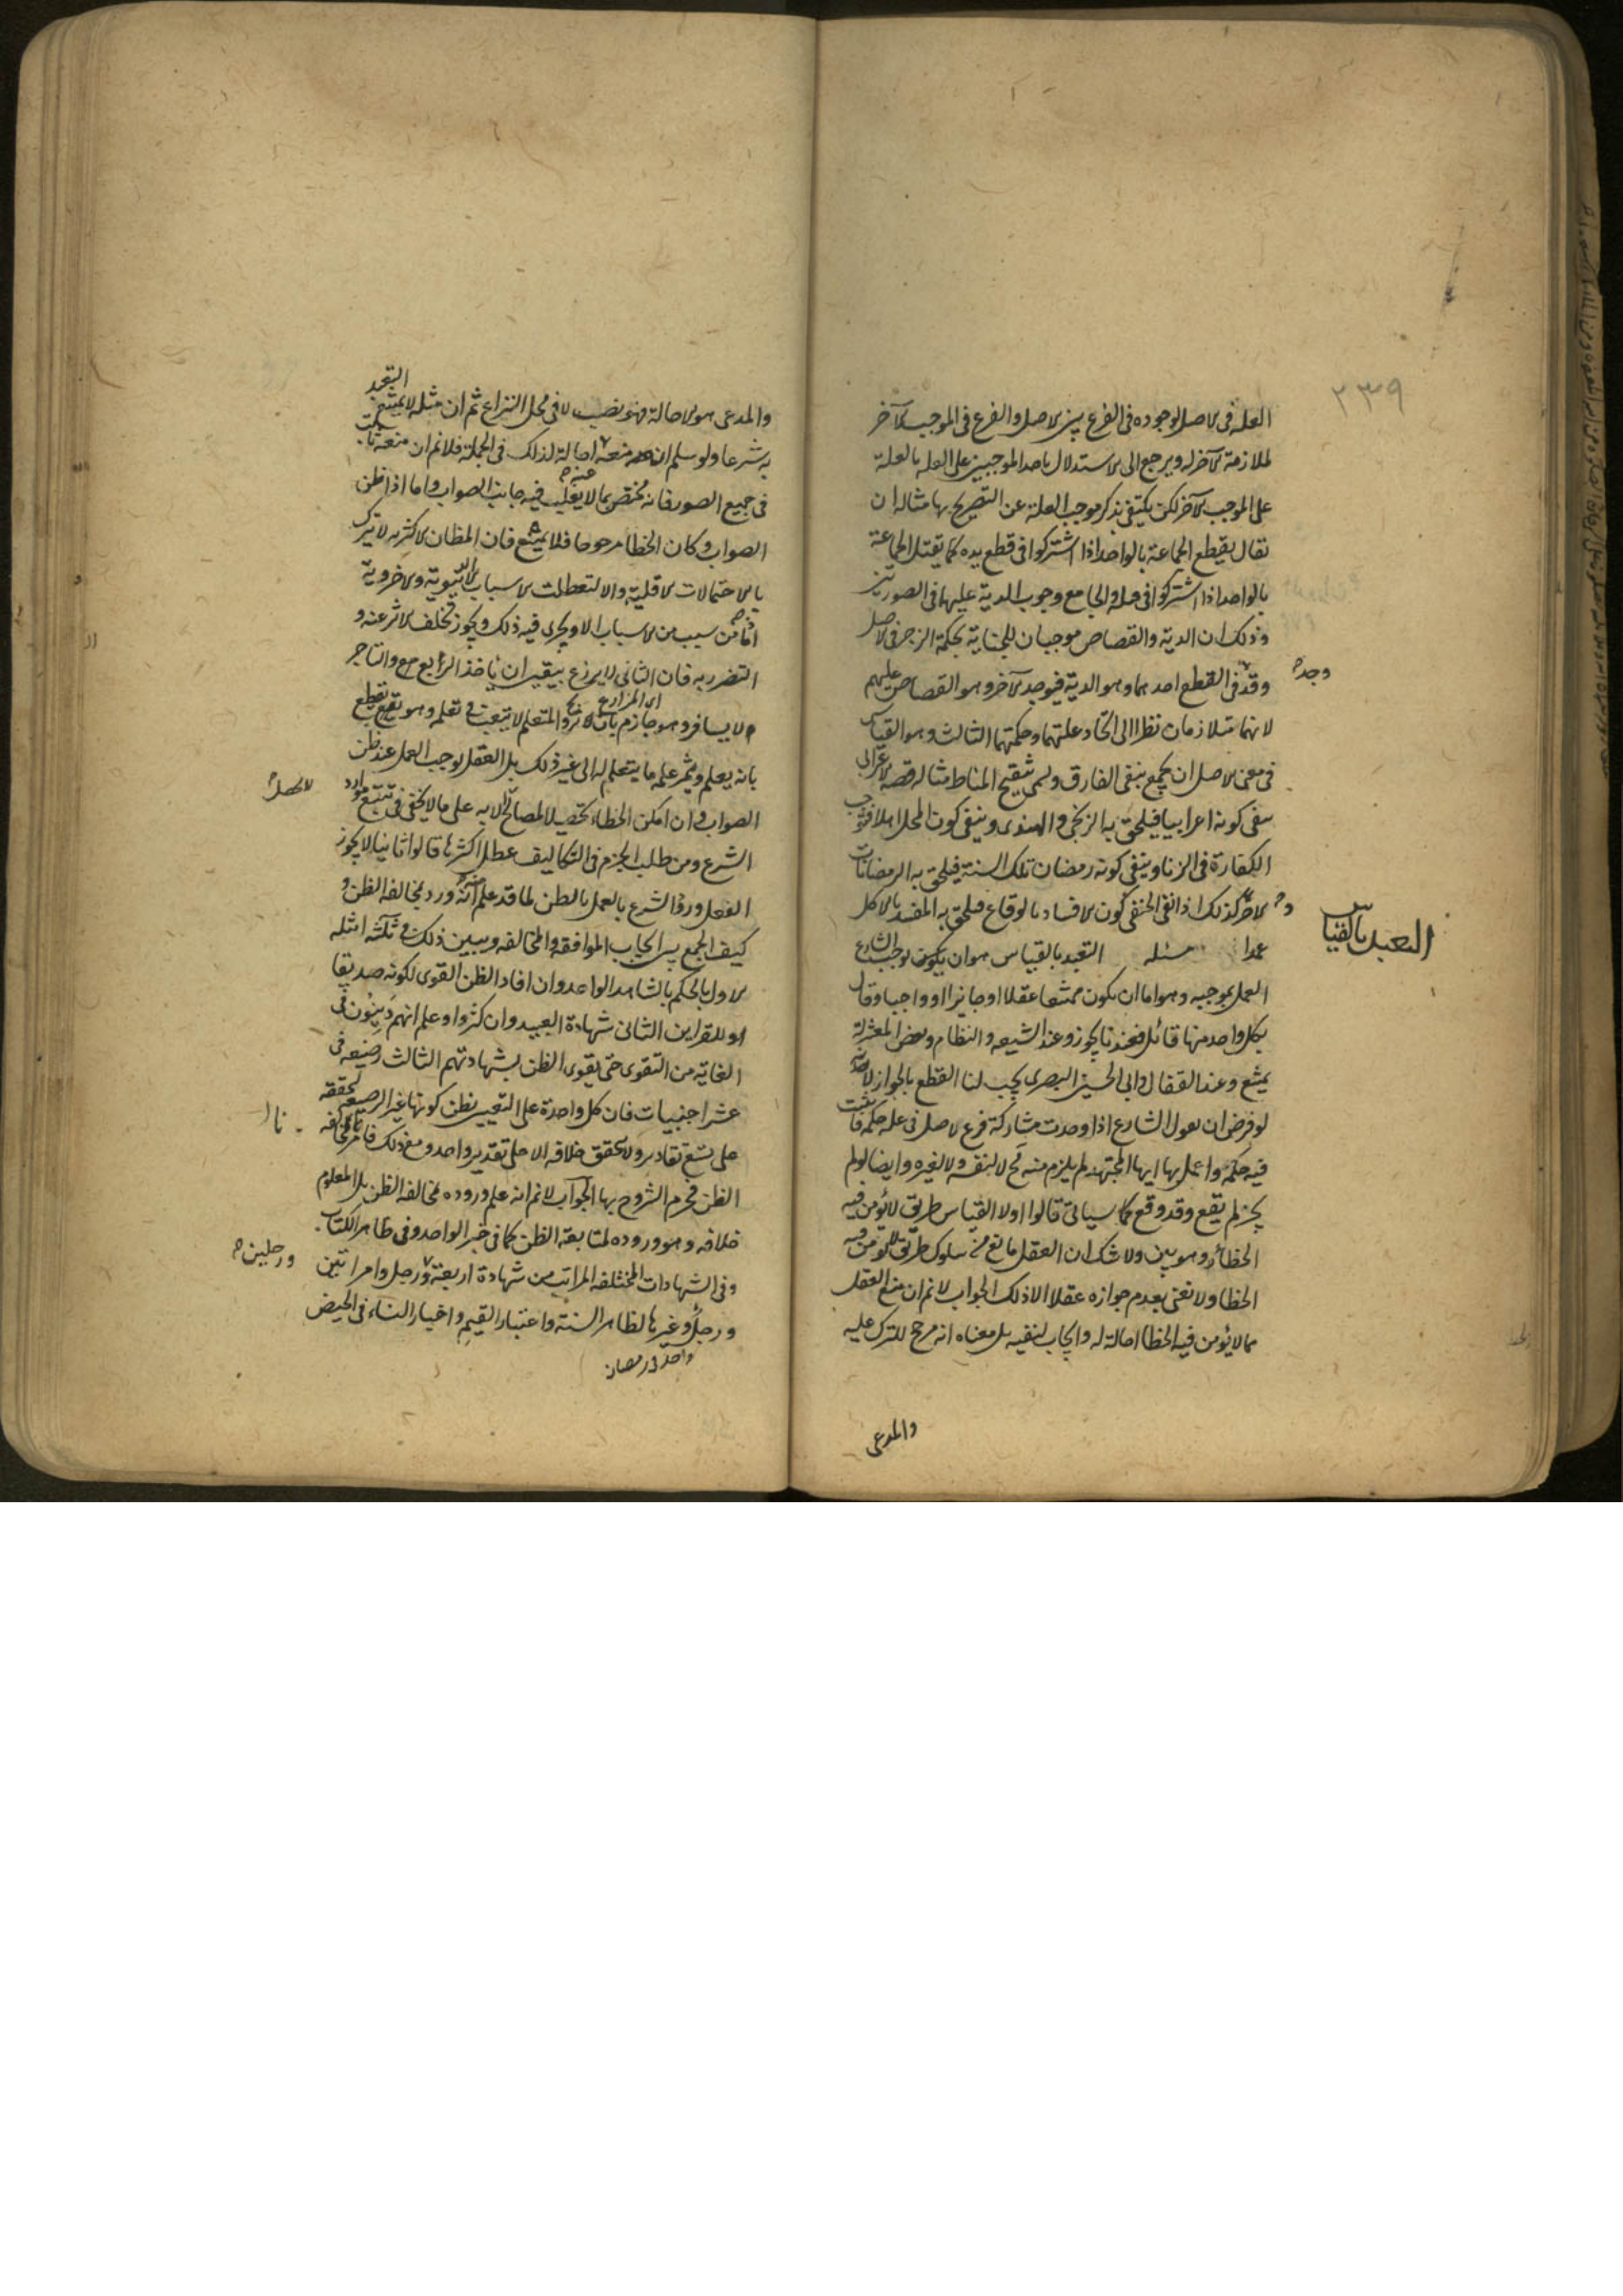 ٢٣٩
العلة فى الاصل لوجوده فى الفرع بين الاصل والفرع فى الموجب الآخر
لملازمة الآخر له ويرجع الى الاستدلال باحد الموجبين على العلة بالعلة
على الموجب الآخر لكن يكتفى بذكر موجب العلة عن التصريح بها مثاله ان
يقال يقطع الجماعة بالواحد اذا اشتركوا فى قطع يده كما يقتل الجماعة
بالواحد اذا اشتركوا فى قتله والجامع وجوب الدية عليها فى الصورتين
وذلك ان الدية والقصاص موجبان للجناية بحكمة الزجر فى الاصل
وقد فى القطع احدهما وهو الدية فيوجد الآخر وهو القصاص عليهم
وجد
لانهما متلازمان نظرا الى اتحاد علتهما وحكمتهما الثالث وهو القياس
فى معنى الاصل ان يجمع بنفى الفارق ويسمى تنقيح المناط مثاله قصة الاعرابى
ينفى كونه اعرابيا فيلحق به الزنجى والهندى وينفى كون المحل اهلا فتجب
الكفارة فى الزنا وينفى كونه رمضان تلك السنة فيلحق به الرمضانات
الاخر كذلك اذا نفى الحنفى كون الافساد بالوقاع فيلحق به المفسد بالاكل
التعبد بالقياس
عمدا مسئله التعبد بالقياس هو ان يوجب الشارع
العمل بموجبه وهو اما ان يكون ممتنعا عقلا او جايزا او واجبا وقال
بكل واحد منها قائل فعندنا يجوز وعند الشيعه والنظام وبعض المعتزلة
يمتنع وعند القفال وابى الحسين البصرى يجب لنا القطع بالجواز لانه
لو فرض ان يقول الشارع اذا وجدت مشاركة فرع لاصل فى علة حكمه فاثبت
فيه حكمه واعمل بها ايها المجتهد لم يلزم منه مح لا لنفسه ولا لغيره وايضا لو لم
يجز لم يقع وقد وقع كما سياتى قالوا اولا القياس طريق لا يؤمن فيه
الخطاء وهو بين ولا شك ان العقل مانع من سلوك طريق لا يؤمن فيه
الخطا ولا نعنى بعدم جوازه عقلا الا ذلك الجواب لا نم ان منع العقل
مما لا يؤمن فيه الخطا احالة له وايجاب لنفيه بل معناه انه مرجح للترك عليه
والمدعى
التعبد
والمدعى هو الاحالة فهو نصب لا فى محل النزاع ثم ان مثله لا يمتنع
به شرعا ولو سلم ان منعه احالة لذلك فى الجملة فلا نم ان منعه ثابت
فى جميع الصور فانه مختص بما لا يغلب فيه جانب الصواب واما اذا ظن
الصواب وكان الخطا مرجوحا فلا يمتنع فان المظان الاكثرية لا تترك
بالاحتمالات الاقلية والا لتعطلت الاسباب الدنيوية والاخروية
اذ ما من سبب من الاسباب الا ويجرى فيه ذلك ويجوز تخلف الاثر عنه و
التضرر به فان الثانى لا يزرع بيقين ان ياخذ الريع والتاجر
اى المزارع
لا يسافر وهو جازم بانه يربح والمتعلم لا يتعب فى تعلمه وهو يقطع
بانه يعلم ويثمر علمه ما يتعلم له الى غير ذلك بل العقل يوجب العمل عند ظن
الصواب وان امكن الخطاء تحصيلا لمصالح لا تحصل الا به على ما لا يخفى فى تتبع موارد
الشرع ومن طلب الجزم فى التكاليف عطل اكثرها قالوا ثانيا لا يجوز
العقل ورود الشرع بالعمل بالظن لما قد علم انه ورد بمخالفه الظن و
كيف الجمع بين ايجاب الموافقه والمخالفه ويبين ذلك فى ثلثة امثله
الاول بالحكم بالشاهد الواحد وان افاد الظن القوى لكونه صديقا
او للقراين الثانى شهادة العبيد وان كثروا وعلم انهم دينون فى
الغاية من التقوى حتى يقوى الظن بشهادتهم الثالث رضيعه فى
عشر اجنبيات فان كل واحدة على التعيين يظن كونها غير الرضيعه لتحققه
على تسع تقادير ولا تحقق خلافه الا على تقدير واحد ومع ذلك فامر بمخالفه
الظن فحرم التزوج بها الجواب لا نم انه علم وروده بمخالفه الظن بل المعلوم
خلافه وهو وروده لمتابعة الظن كما فى خبر الواحد وفى ظاهر الكتاب
وفى الشهادات المختلفه المراتب من شهادة اربعة ورجل وامراتين
ورجلين
ورجل وغيرها لظاهر السنة واعتبار القيم واخبار النساء فى الحيض
واحد فى رمضان